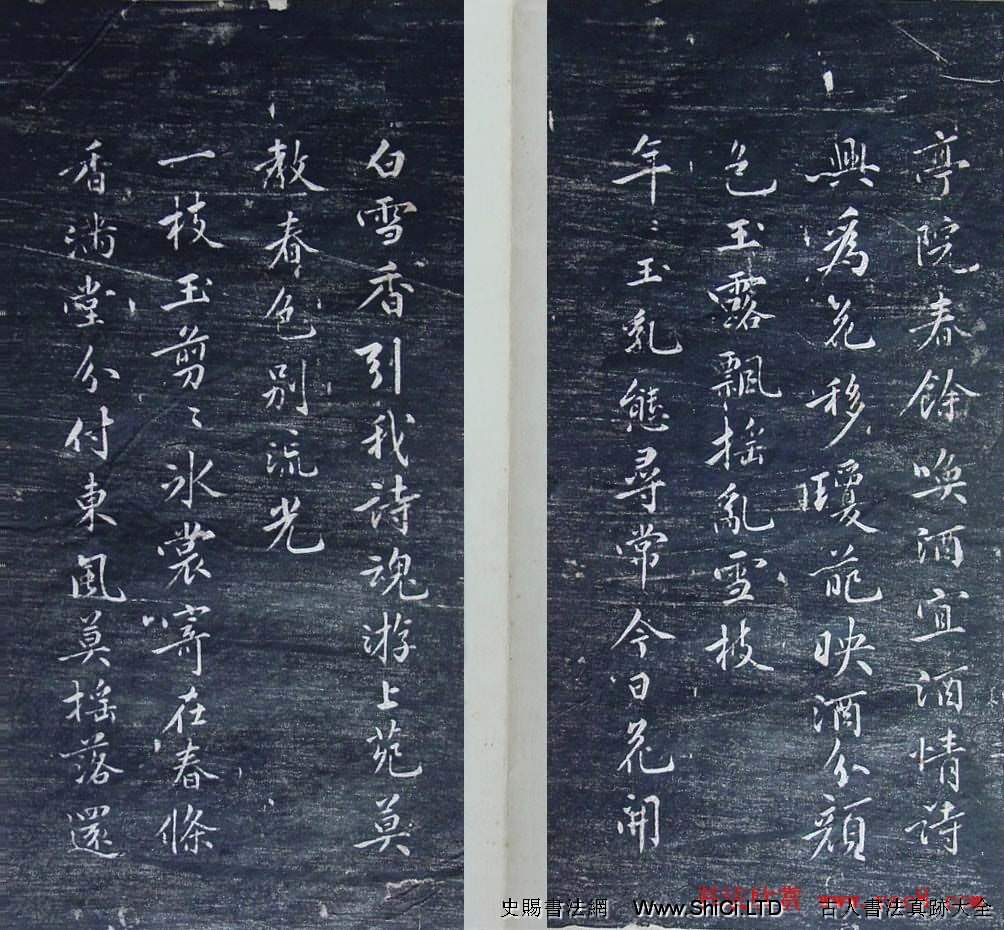 亭院春餘喚酒宜酒情詩
興為花移瓊葩映酒分顏
色玉露飄搖亂雪枝
年〻玉乳態尋常今日花開
白雪香引我詩魂游上苑莫
教春色別流光
一枝玉剪〻冰裳寄在春條
香滿堂分付東風莫搖落還
史賜書法網 Www.ShiCi.LTD 古人書法真跡大全